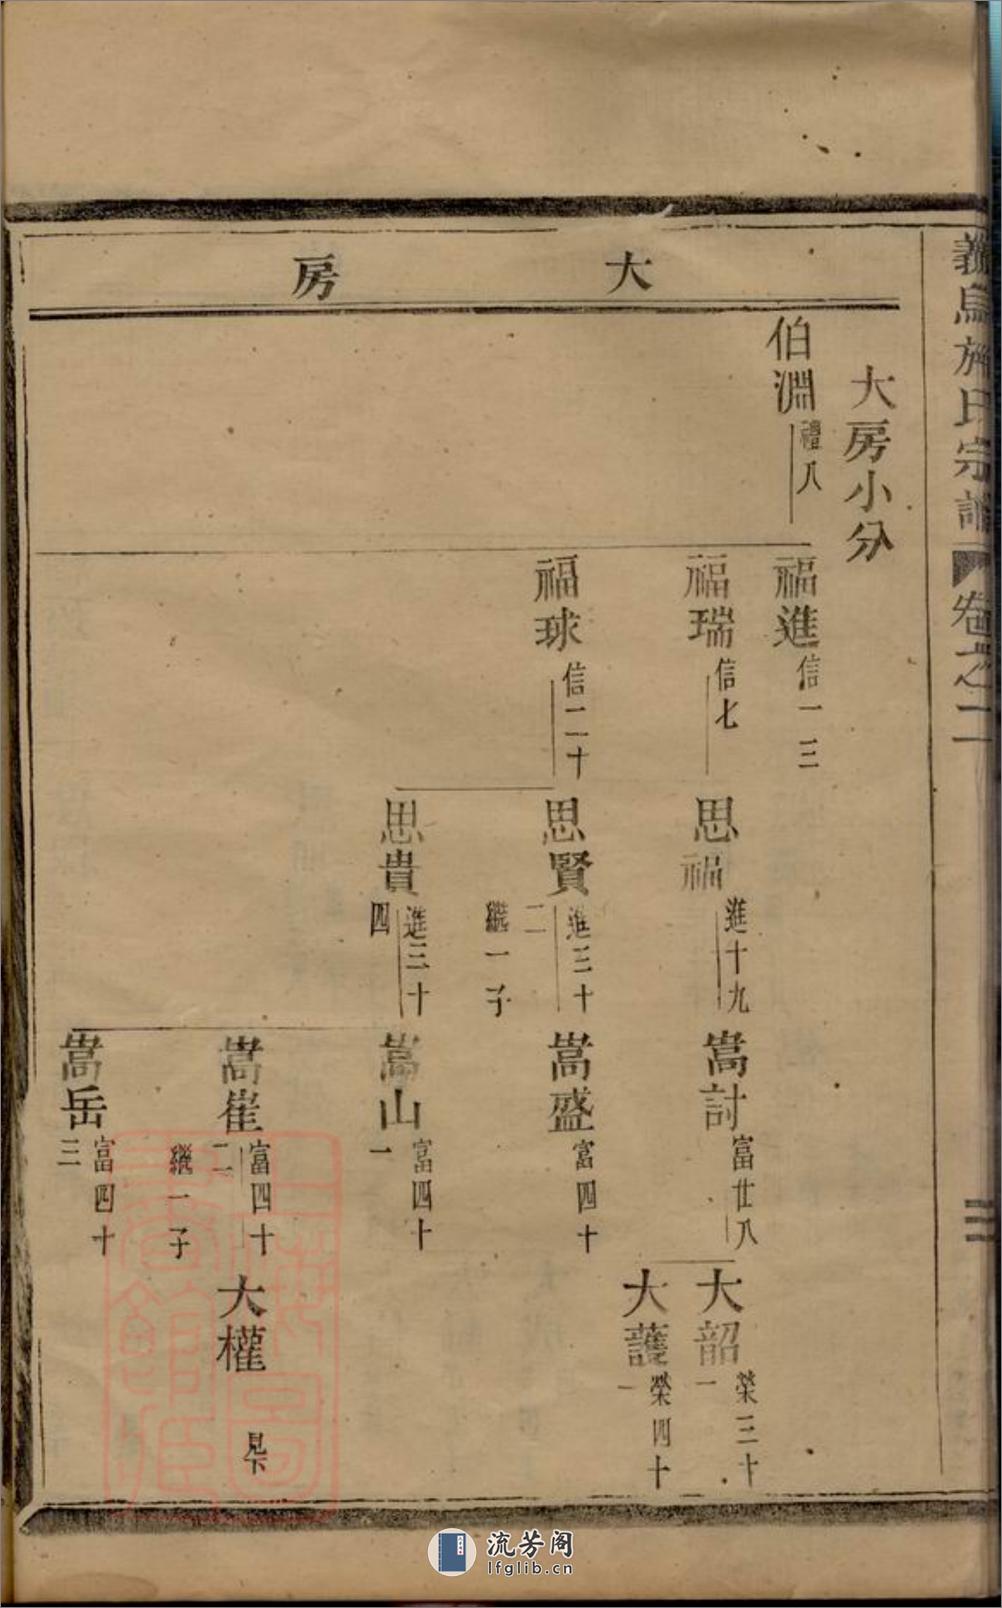 義烏施氏宗譜 卷之二
大房
大房小分
伯淵 禮八
福進 信一三
福瑞 信七
福球 信二十
思福 進十九
思賢 進三十二 繼一子
思貴 進三十四
嵩討 富廿八
嵩盛 富四十
嵩山 富四十一
嵩崔 富四十二 繼一子
嵩岳 富四十三
大韶 榮三十一
大護 榮四十一
大權 見下
上海圖書館藏
流芳阁
lfglib.cn